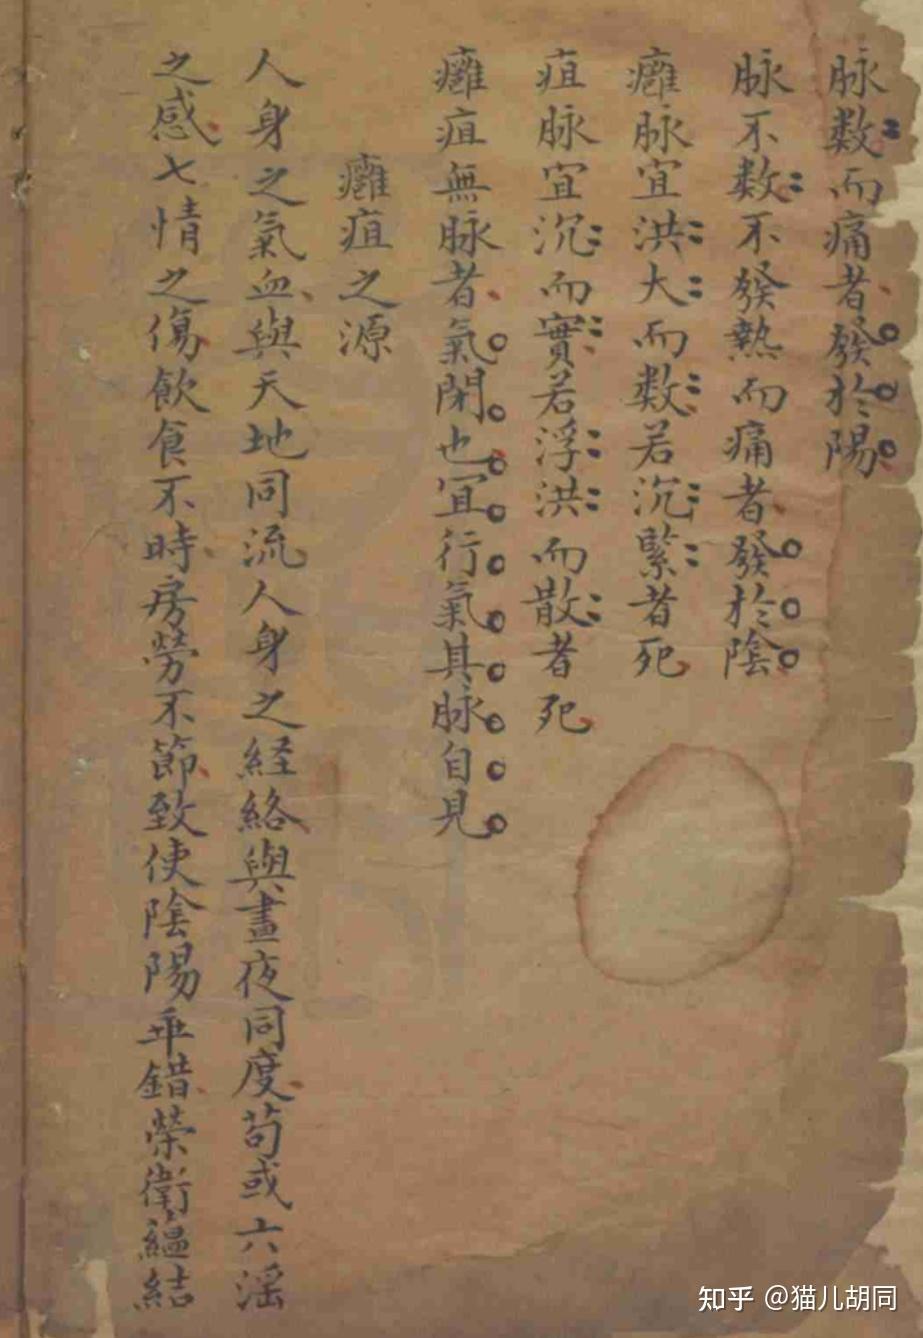 脉数而痛者發於陽
脉不数不發熱而痛者發於陰
癰脉宜洪大而数若沉緊者死
疽脉宜沉而實若浮洪而散者死
癰疽無脉者氣閉也宜行氣其脉自見
癰疽之源
人身之氣血與天地同流人身之経絡與晝夜同度苟或六淫
之感七情之傷飲食不時房勞不節致使陰陽乖錯榮衛緼結
知乎 @猫儿胡同